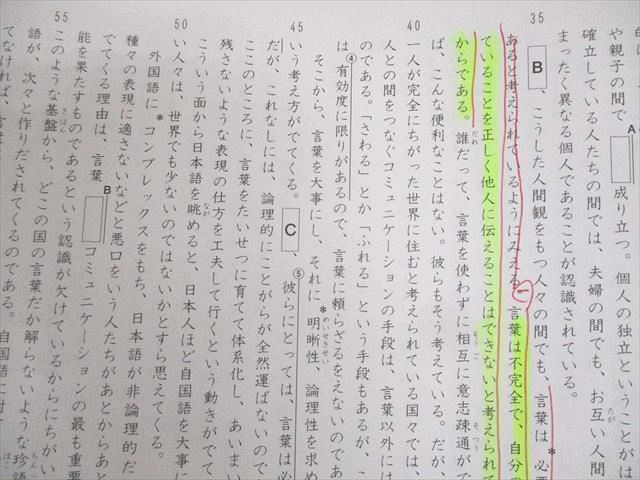 的に
や親子の間で A 成り立つ。個人の独立ということがは
確立している人たちの間では、夫婦の間でも、お互い人間
まったく異なる個人であることが認識されている。
35 B 、こうした人間観をもつ人々の間でも、言葉は*必要
あると考えられているようにみえる。言葉は不完全で、自分の
ていることを正しく他人に伝えることはできないと考えられて
からである。誰だって、言葉を使わずに相互に意志疎通がで
ば、こんな便利なことはない。彼らもそう考えている。だが、
40 一人が完全にちがった世界に住むと考えられている国々では、
人との間をつなぐコミュニケーションの手段は、言葉以外には
のである。「さわる」とか「ふれる」という手段もあるが
は④有効度に限りがあるので、言葉に頼らざるをえないのであ
そこから、言葉を大事にし、それに*明晰性、論理性を求め
45 いう考え方がでてくる。 C 、⑤彼らにとっては、言葉は必
だが、これなしには、論理的にことがらが全然運ばないので
ここのところに、言葉をたいせつに育てて体系化し、あいまい
残さないような表現の仕方を工夫して行くという動きがでて
こういう面から日本語を眺めると、日本人ほど自国語を大事に
50 い人々は、世界でも少ないのではないかとすら思えてくる。
外国語に*コンプレックスをもち、日本語が非論理的だ
種々の表現に適さないなどと悪口をいう人たちがあとからあと
でてくる理由は、言葉 B コミュニケーションの最も重要
能を果たすものであるという認識が欠けているからにちがい
55 このような基盤から、どこの国の言葉だか解らないような珍語
語が、次々と作りだされてくるのである。自国語に対
てなければ、言葉